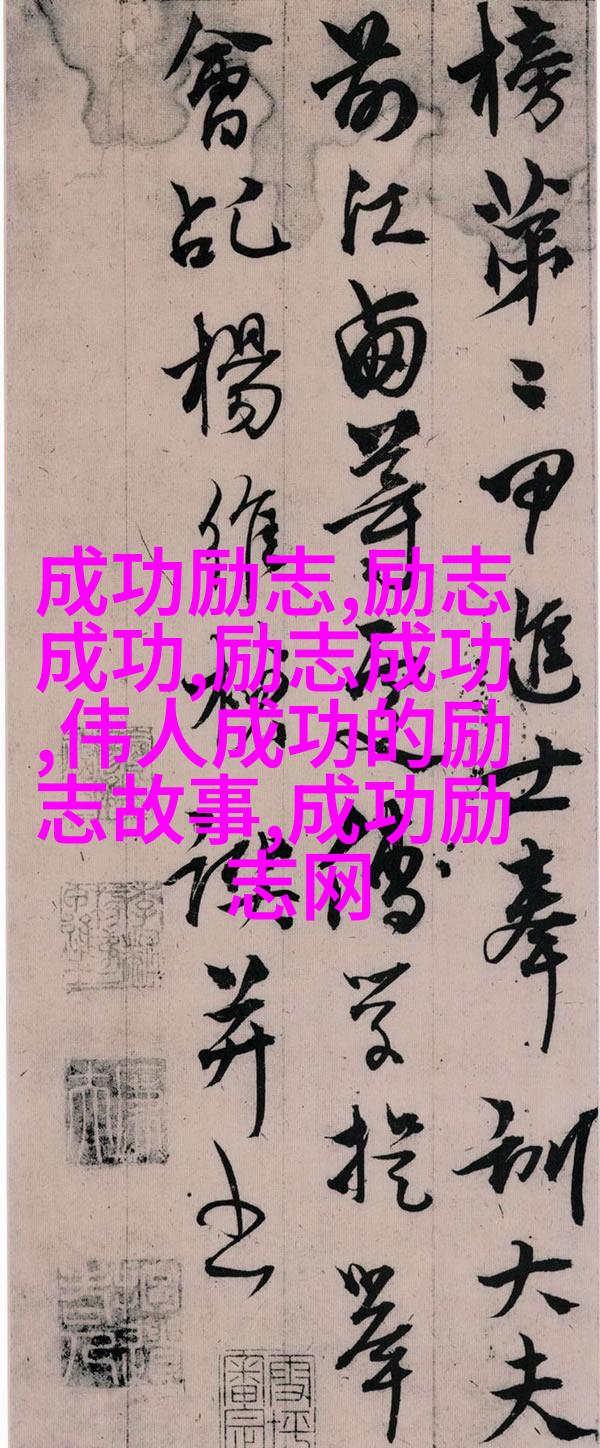 榜第二甲進士奉訓大夫
前江西等處儒學提舉
會乩楊維楨譔并書
成功励志,励志
成功,励志成功
,伟人成功的励
志故事,成功励
志网